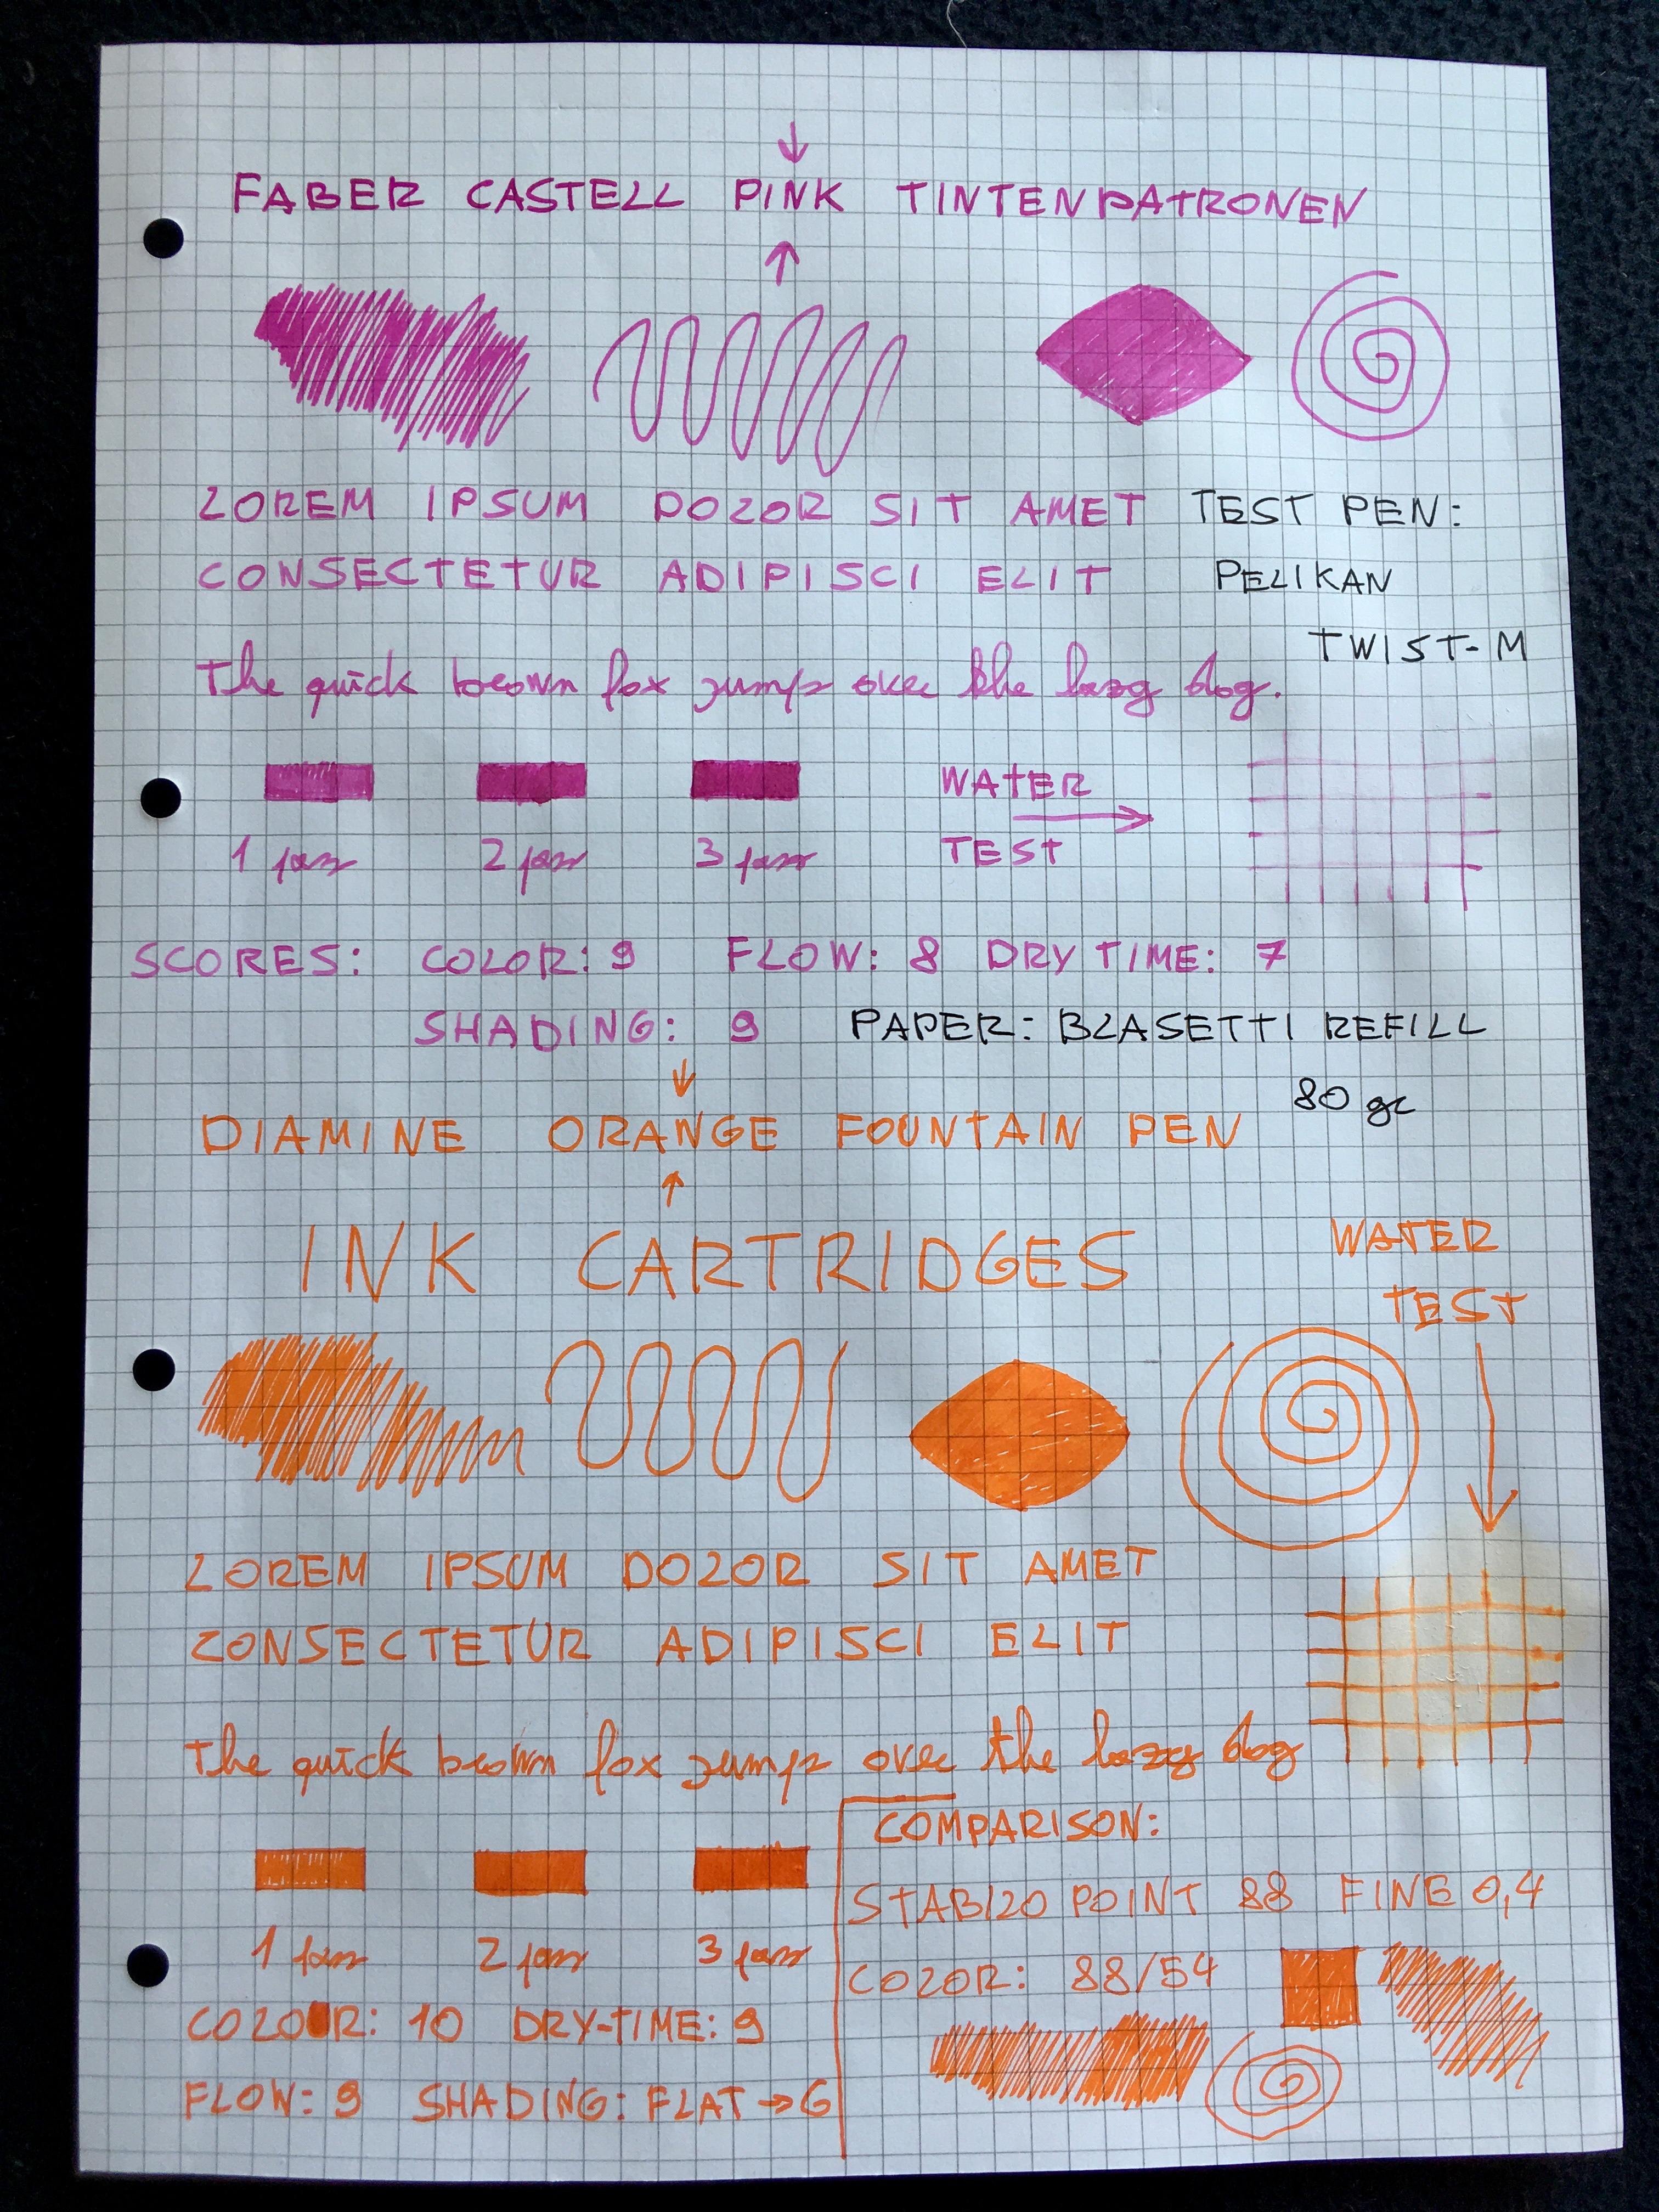 FABER CASTELL PINK TINTENPATRONEN
LOREM IPSUM DOLOR SIT AMET
CONSECTETUR ADIPISCI ELIT
TEST PEN:
PELIKAN
TWIST-M
The quick brown fox jumps over the lazy dog.
1 pass 2 pass 3 pass
WATER
TEST
SCORES: COLOR: 9 FLOW: 8 DRY TIME: 7
SHADING: 9
PAPER: BLASETTI REFILL
80 gr
DIAMINE ORANGE FOUNTAIN PEN
INK CARTRIDGES
WATER
TEST
LOREM IPSUM DOLOR SIT AMET
CONSECTETUR ADIPISCI ELIT
The quick brown fox jumps over the lazy dog
1 pass 2 pass 3 pass
COLOR: 10 DRY-TIME: 9
FLOW: 9 SHADING: FLAT → 6
COMPARISON:
STABILO POINT 88 FINE 0,4
COLOR: 88/54